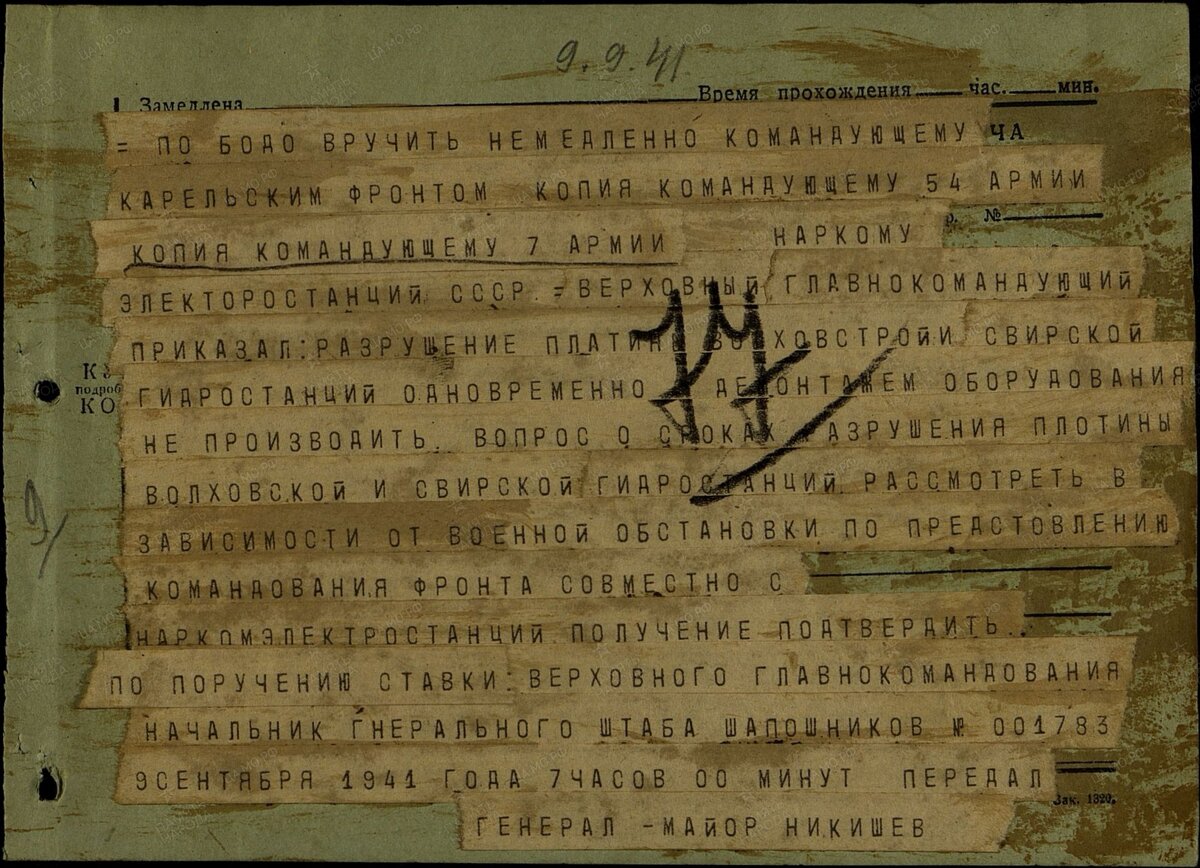 9.9.41
Замедлена Время прохождения час. мин.
= ПО БОДО ВРУЧИТЬ НЕМЕДЛЕННО КОМАНДУЮЩЕМУ ЧА
КАРЕЛЬСКИМ ФРОНТОМ КОПИЯ КОМАНДУЮЩЕМУ 54 АРМИИ
№
КОПИЯ КОМАНДУЮЩЕМУ 7 АРМИИ НАРКОМУ
ЭЛЕКТОРОСТАНЦИЙ СССР = ВЕРХОВНЫЙ ГЛАВНОКОМАНДУЮЩИЙ
ПРИКАЗАЛ: РАЗРУШЕНИЕ ПЛАТИН ХОВСТРОЙИ СВИРСКОЙ
подроб
КО
ГИДРОСТАНЦИЙ ОДНОВРЕМЕННО ДЕМОНТАЖЕМ ОБОРУДОВАНИЯ
НЕ ПРОИЗВОДИТЬ. ВОПРОС О СРОКАХ АЗРУШЕНИЯ ПЛОТИНЫ
ВОЛХОВСКОЙ И СВИРСКОЙ ГИДРОСТАНЦИЙ РАССМОТРЕТЬ В
9/
ЗАВИСИМОСТИ ОТ ВОЕННОЙ ОБСТАНОВКИ ПО ПРЕДСТОВЛЕНИЮ
КОМАНДОВАНИЯ ФРОНТА СОВМЕСТНО С
НАРКОМЭЛЕКТРОСТАНЦИЙ ПОЛУЧЕНИЕ ПОДТВЕРДИТЬ..
ПО ПОРУЧЕНИЮ СТАВКИ: ВЕРХОВНОГО ГЛАВНОКОМАНДОВАНИЯ
НАЧАЛЬНИК ГНЕРАЛЬНОГО ШТАБА ШАПОШНИКОВ № 001783
9СЕНТЯБРЯ 1941 ГОДА 7ЧАСОВ 00 МИНУТ ПЕРЕДАЛ
Зак. 1320.
ГЕНЕРАЛ -МАЙОР НИКИШЕВ